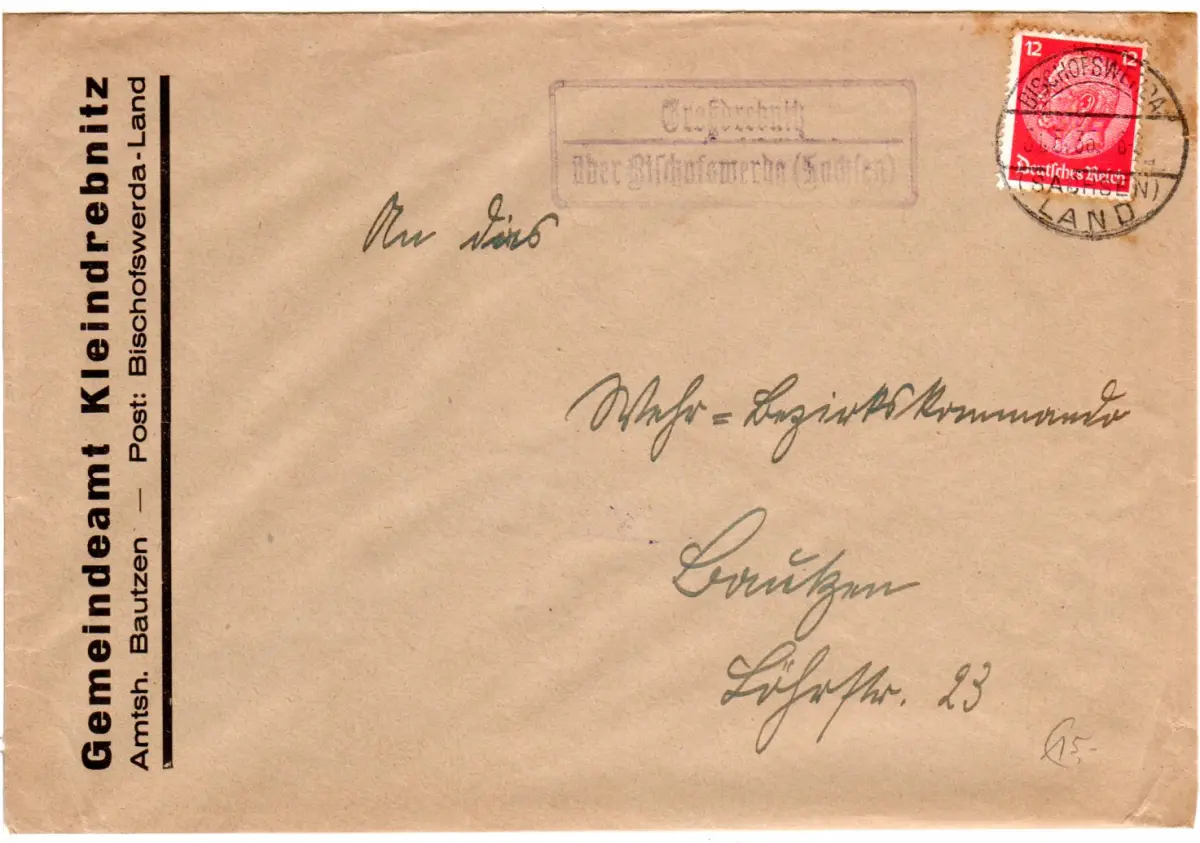 Gemeindeamt Kleindrebnitz
Amtsh. Bautzen — Post: Bischofswerda-Land
Großdrebnitz
über Bischofswerda (Sachsen)
12 12
Deutsches Reich
BISCHOFSWERDA
(SACHSEN)
LAND
An das
Wehr=Bezirkskommando
Bautzen
Löhrstr. 23
15,-